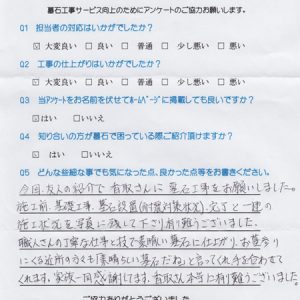 墓石工事サービス向上のためにアンケートのご協力お願いします。
01 担当者の対応はいかがでしたか？
☑ 大変良い □ 良い □ 普通 □ 少し悪い □ 悪い
02 工事の仕上がりはいかがでしたか？
☑ 大変良い □ 良い □ 普通 □ 少し悪い □ 悪い
03 当アンケートをお名前を伏せてホームページに掲載しても良いですか？
☑ はい □ いいえ
04 知り合いの方が墓石で困っている際ご紹介頂けますか？
☑ はい □ いいえ
05 どんな些細な事でも気になった点、良かった点等をお書きください。
今回、友人の紹介で 香取さんに 墓石工事をお願いしました。
施工前、基礎工事、墓石設置(耐震対策状況)、完了と一連の
施工状況を写真に残して下さり有り難うございました。
職人さんの丁寧な仕事と技で素晴しい墓石に仕上がり、お墓参り
にくる近所のうちも「素晴らしい墓石だね」と言ってくれ 声を掛けて
くれます。家族一同感謝してます。香取さん本当に有り難うございました
ご協力ありがとうございました